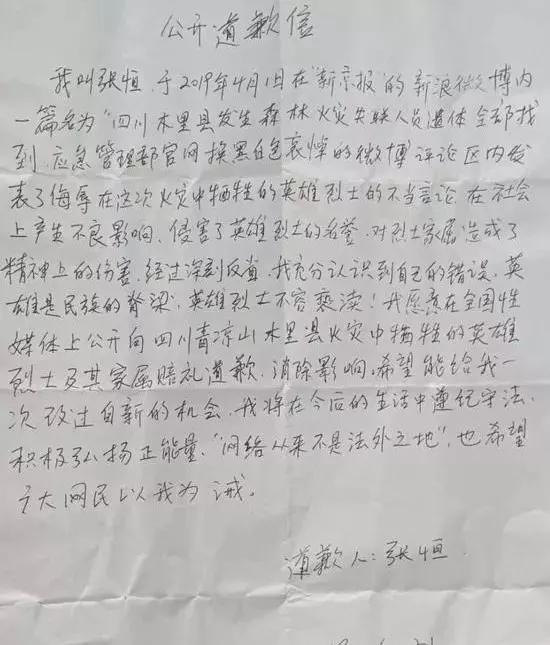 公开道歉信
我叫张恒,于2019年4月1日在“新京报”的新浪微博内
一篇名为“四川木里县发生森林火灾失联人员遗体全部找
到,应急管理部官网换黑白色哀悼的微博”评论区内发
表了侮辱在这次火灾中牺牲的英雄烈士的不当言论,在社会
上产生不良影响,侵害了英雄烈士的名誉,对烈士家属造成了
精神上的伤害,经过深刻反省,我充分认识到自己的错误,英
雄是民族的脊梁,英雄烈士不容亵渎!我愿意在全国性
媒体上公开向四川青凉山木里县火灾中牺牲的英雄
烈士及其家属赔礼道歉,消除影响,希望能给我一
次改过自新的机会,我将在今后的生活中遵纪守法,
积极弘扬正能量,“网络从来不是法外之地”,也希望
广大网民以我为诫。
道歉人:张恒